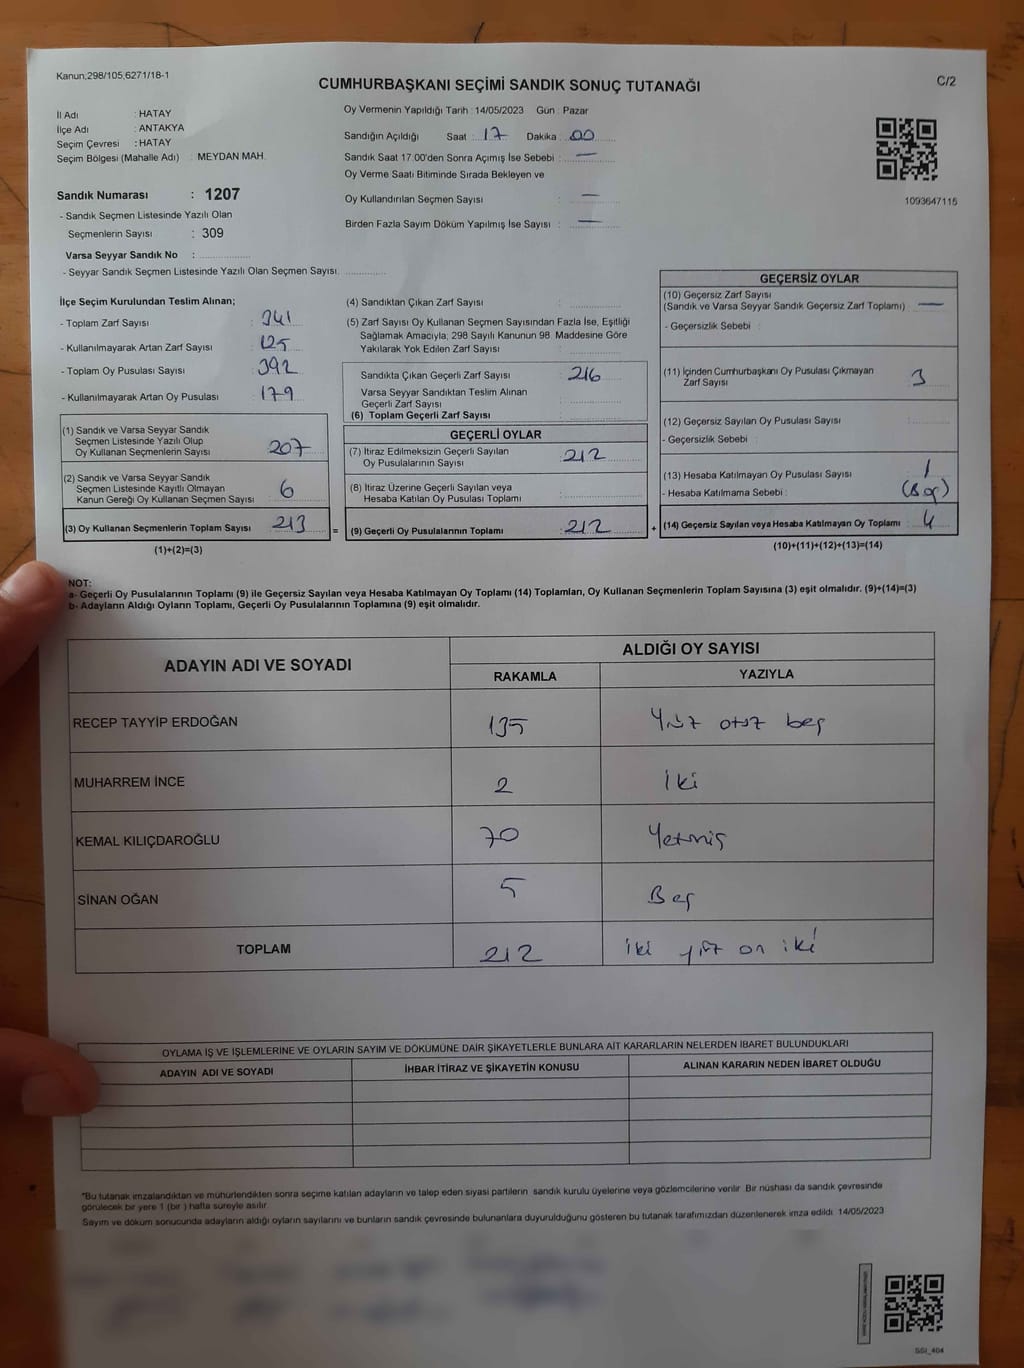 Kanun,298/105,6271/18-1
CUMHURBAŞKANI SEÇİMİ SANDIK SONUÇ TUTANAĞI
C/2
İl Adı : HATAY
İlçe Adı : ANTAKYA
Seçim Çevresi : HATAY
Seçim Bölgesi (Mahalle Adı) : MEYDAN MAH.
Oy Vermenin Yapıldığı Tarih : 14/05/2023 Gün : Pazar
Sandığın Açıldığı Saat : 17 Dakika : 00
Sandık Saat 17.00'den Sonra Açımış İse Sebebi : —
Oy Verme Saati Bitiminde Sırada Bekleyen ve
Oy Kullandırılan Seçmen Sayısı : —
Birden Fazla Sayım Döküm Yapılmış İse Sayısı : —
1093647115
Sandık Numarası : 1207
- Sandık Seçmen Listesinde Yazılı Olan
Seçmenlerin Sayısı : 309
Varsa Seyyar Sandık No :
- Seyyar Sandık Seçmen Listesinde Yazılı Olan Seçmen Sayısı:
İlçe Seçim Kurulundan Teslim Alınan;
- Toplam Zarf Sayısı : 341
- Kullanılmayarak Artan Zarf Sayısı : 125
- Toplam Oy Pusulası Sayısı : 392
- Kullanılmayarak Artan Oy Pusulası : 179
(1) Sandık ve Varsa Seyyar Sandık
Seçmen Listesinde Yazılı Olup
Oy Kullanan Seçmenlerin Sayısı : 207
(2) Sandık ve Varsa Seyyar Sandık
Seçmen Listesinde Kayıtlı Olmayan
Kanun Gereği Oy Kullanan Seçmen Sayısı : 6
(3) Oy Kullanan Seçmenlerin Toplam Sayısı : 213
(1)+(2)=(3)
(4) Sandıktan Çıkan Zarf Sayısı :
(5) Zarf Sayısı Oy Kullanan Seçmen Sayısından Fazla İse, Eşitliği
Sağlamak Amacıyla, 298 Sayılı Kanunun 98. Maddesine Göre
Yakılarak Yok Edilen Zarf Sayısı :
Sandıkta Çıkan Geçerli Zarf Sayısı : 216
Varsa Seyyar Sandıktan Teslim Alınan
Geçerli Zarf Sayısı :
(6) Toplam Geçerli Zarf Sayısı :
GEÇERLİ OYLAR
(7) İtiraz Edilmeksizin Geçerli Sayılan
Oy Pusulalarının Sayısı : 212
(8) İtiraz Üzerine Geçerli Sayılan veya
Hesaba Katılan Oy Pusulası Toplamı :
= (9) Geçerli Oy Pusulalarının Toplamı : 212 +
GEÇERSİZ OYLAR
(10) Geçersiz Zarf Sayısı
(Sandık ve Varsa Seyyar Sandık Geçersiz Zarf Toplamı) : —
- Geçersizlik Sebebi :
(11) İçinden Cumhurbaşkanı Oy Pusulası Çıkmayan
Zarf Sayısı : 3
(12) Geçersiz Sayılan Oy Pusulası Sayısı :
- Geçersizlik Sebebi :
(13) Hesaba Katılmayan Oy Pusulası Sayısı : 1
- Hesaba Katılmama Sebebi : (Boş)
(14) Geçersiz Sayılan veya Hesaba Katılmayan Oy Toplamı : 4
(10)+(11)+(12)+(13)=(14)
NOT:
a- Geçerli Oy Pusulalarının Toplamı (9) ile Geçersiz Sayılan veya Hesaba Katılmayan Oy Toplamı (14) Toplamları, Oy Kullanan Seçmenlerin Toplam Sayısına (3) eşit olmalıdır. (9)+(14)=(3)
b- Adayların Aldığı Oyların Toplamı, Geçerli Oy Pusulalarının Toplamına (9) eşit olmalıdır.
ADAYIN ADI VE SOYADI ALDIĞI OY SAYISI
RAKAMLA YAZIYLA
RECEP TAYYİP ERDOĞAN 135 Yüz otuz beş
MUHARREM İNCE 2 İki
KEMAL KILIÇDAROĞLU 70 Yetmiş
SİNAN OĞAN 5 Beş
TOPLAM 212 iki yüz on iki
OYLAMA İŞ VE İŞLEMLERİNE VE OYLARIN SAYIM VE DÖKÜMÜNE DAİR ŞİKAYETLERLE BUNLARA AİT KARARLARIN NELERDEN İBARET BULUNDUKLARI
ADAYIN ADI VE SOYADI İHBAR İTİRAZ VE ŞİKAYETİN KONUSU ALINAN KARARIN NEDEN İBARET OLDUĞU
*Bu tutanak imzalandıktan ve mühürlendikten sonra seçime katılan adayların ve talep eden siyasi partilerin sandık kurulu üyelerine veya gözlemcilerine verilir. Bir nüshası da sandık çevresinde
görülecek bir yere 1 (bir ) hafta süreyle asılır.
Sayım ve döküm sonucunda adayların aldığı oyların sayılarını ve bunların sandık çevresinde bulunanlara duyurulduğunu gösteren bu tutanak tarafımızdan düzenlenerek imza edildi. 14/05/2023
SGI_404